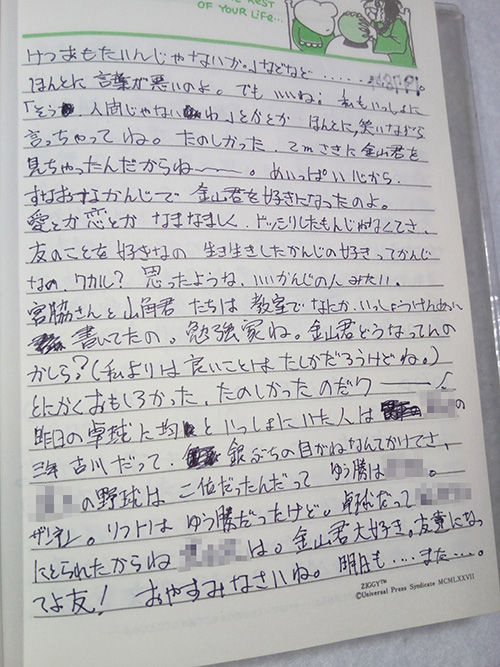 OF YOUR LIFE...
けつまもたいんじゃないか。」などなど......。
ほんとに言葉が悪いのよ。でもいいね；私もいっしょに
「そう、人間じゃないわ」とかとか ほんとに、笑いながら
言っちゃってね。たのしかった、てmさきに金山君を
見ちゃったんだからね〜〜。めいっぱい心から、
すなおなかんじで 金山君を好きになったのよ。
愛とか恋とか なまなましく、ドッシリしたもんじゃなくてさ、
友のことを好きなの 生き生きしたかんじの好きってかんじ
なの、ワカル？ 思ったような、いいかんじの人みたい。
宮脇さんと山角君 たちは 教室でなにか、いっしょうけんめい
書いてたの。勉強家ね。金山君どうなってんの
かしら？（私よりは良いことはたしかだろうけどね。）
とにかくおもしろかった、たのしかったのだワ——！
昨日の卓球に均といっしょにいた人は の
三年 古川だって、銀ぶちの目がねなんてかけてさ、
の野球は 二位だったんだって ゆう勝は 。
ザンネン。ソフトは ゆう勝だったけど。卓球だって
にとられたからね は。金山君大好き。友達になっ
てよ友！ おやすみなさいね。明日も....また....。
ZIGGY™
©Universal Press Syndicate MCMLXXVII